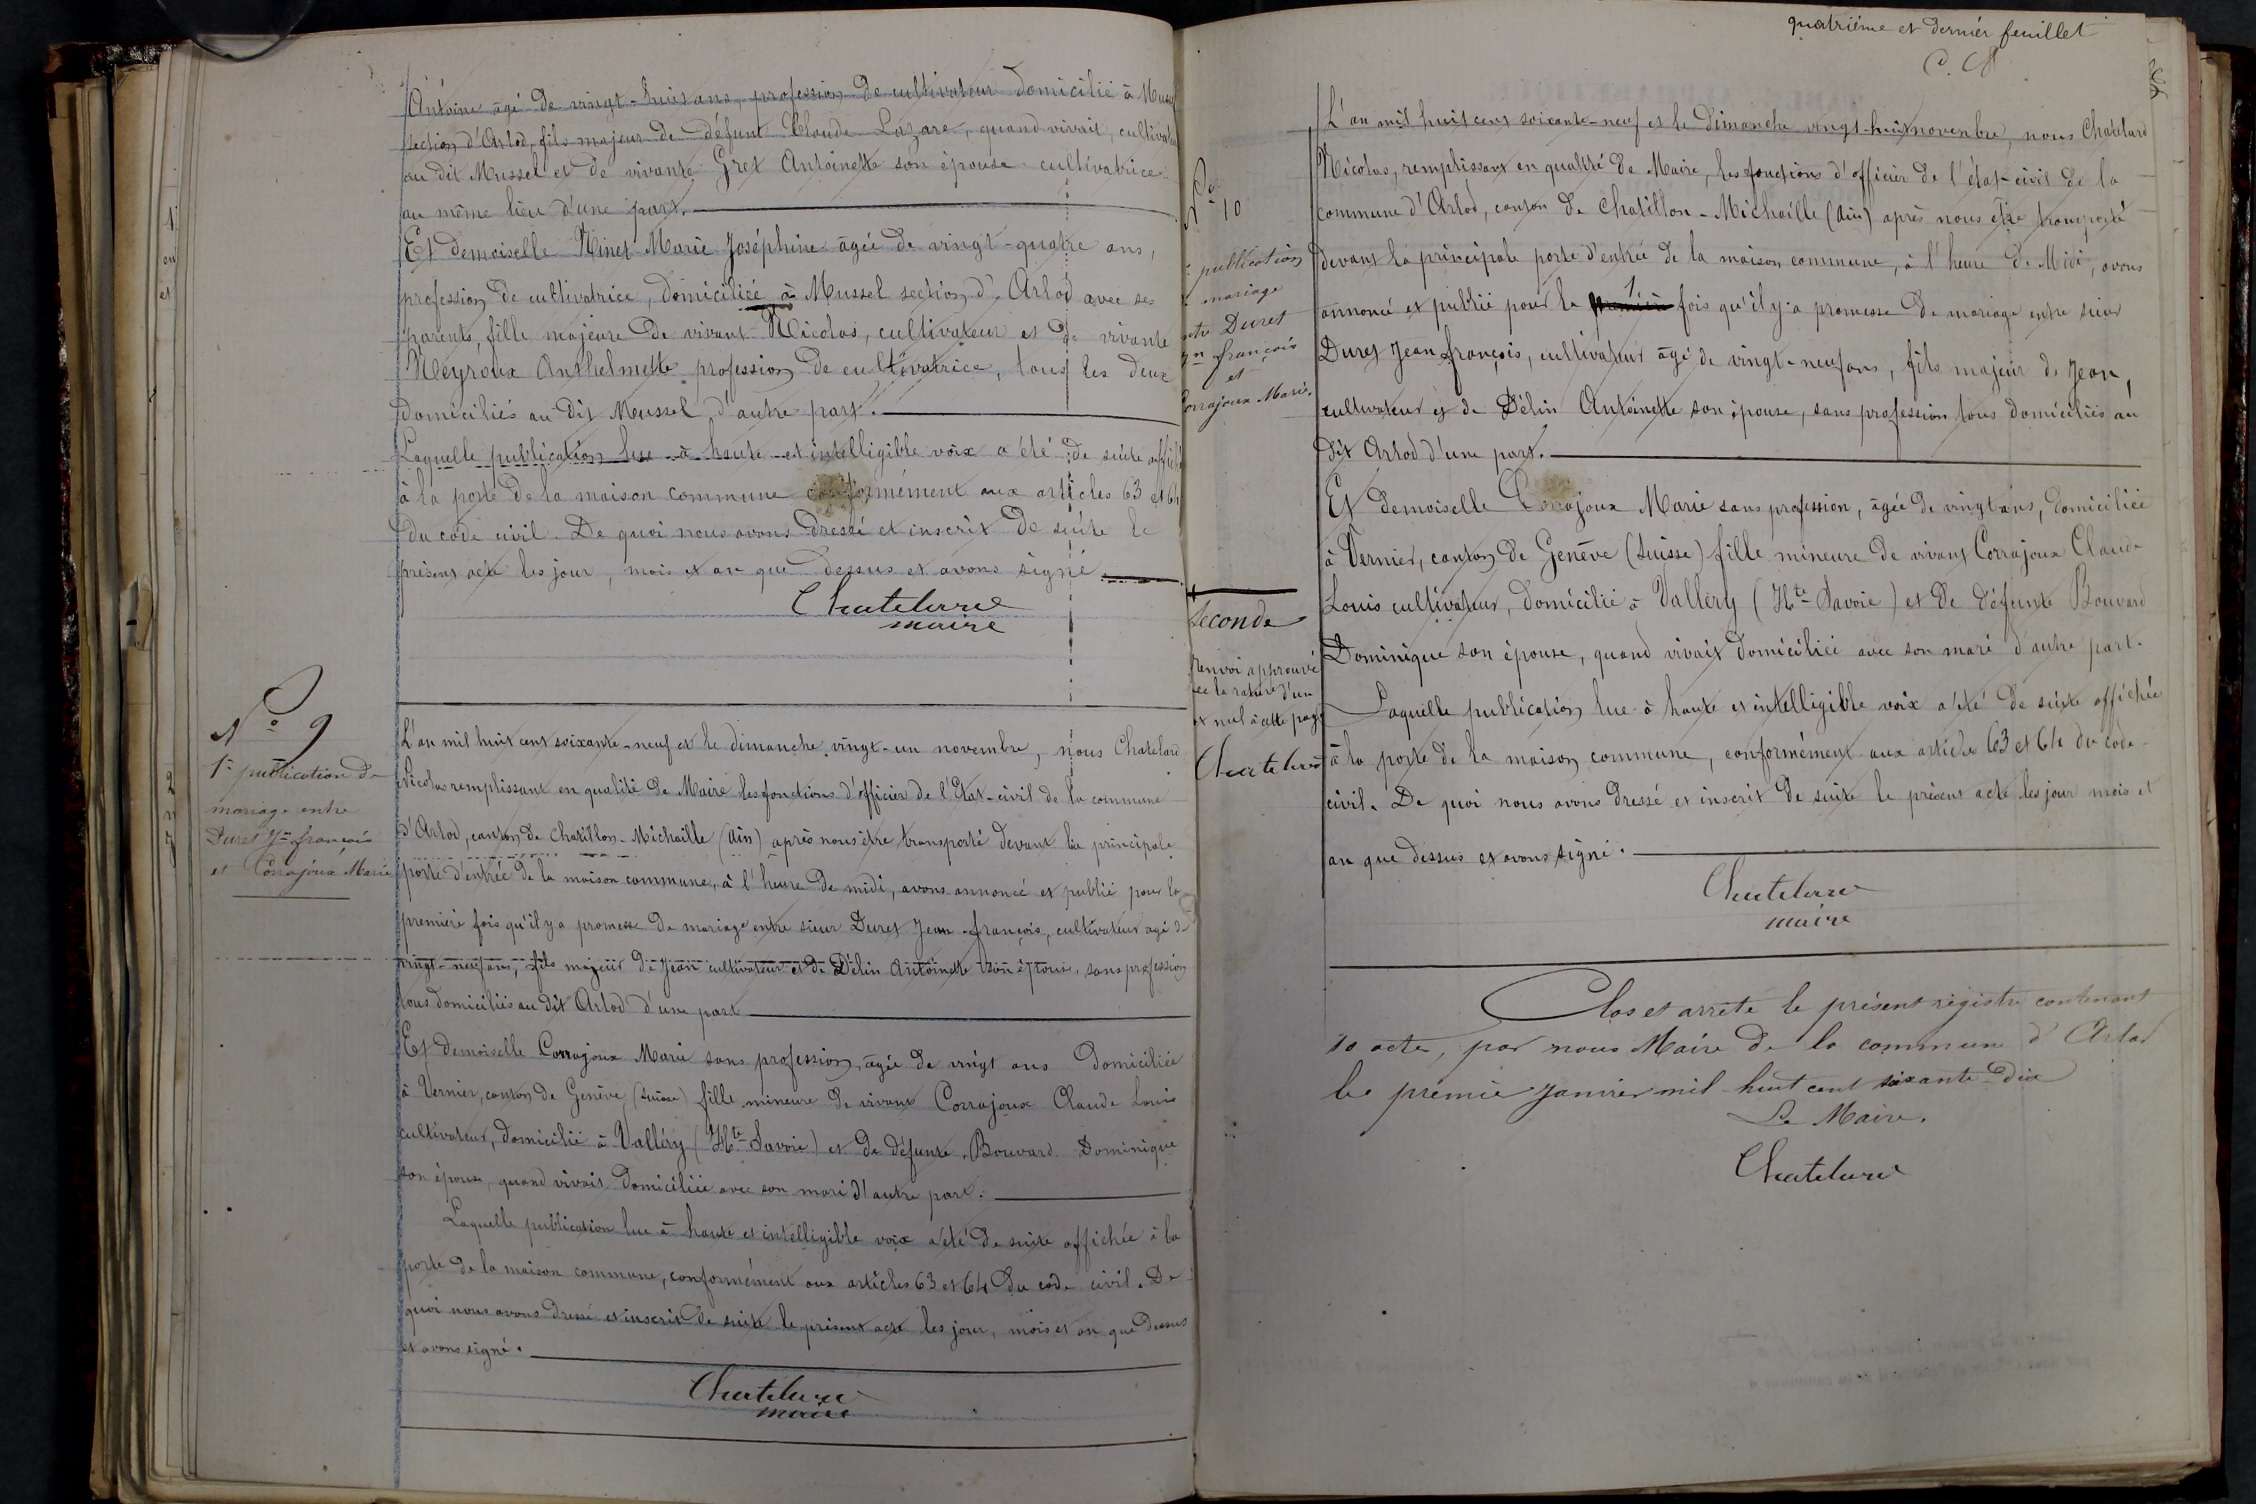 Antoine âgé de vingt-huit ans, profession de cultivateur domicilié à Mussel
section d'Arlod, fils majeur de défunt Claude Lazare, quand vivait, cultivateur
au dit Mussel et de vivante Gret Antoinette son épouse cultivatrice
au même lieu d'une part.
Et demoiselle Ninet Marie Joséphine âgée de vingt-quatre ans,
profession de cultivatrice, domiciliée à Mussel section d'Arlod avec ses
parents, fille majeure de vivant Nicolas, cultivateur et de vivante
Neyroux Anthelmette profession de cultivatrice, tous les deux
domiciliés au dit Mussel d'autre part.
Laquelle publication lue à haute et intelligible voix a été de suite affichée
à la porte de la maison commune conformément aux articles 63 et 64
du code civil. De quoi nous avons dressé et inscrit de suite le
présent acte les jour, mois et an que dessus et avons signé
Chatelard
maire
N° 9
1e publication de
mariage entre
Duret Jn françois
et Corrajoux Marie
L'an mil huit cent soixante-neuf et le dimanche vingt-un novembre, nous Chatelard
Nicolas remplissant en qualité de Maire les fonctions d'officier de l'Etat-civil de la commune
d'Arlod, canton de Chatillon-Michaille (Ain) après nous être transporté devant la principale
porte d'entrée de la maison commune, à l'heure de midi, avons annoncé et publié pour la
première fois qu'il y a promesse de mariage entre sieur Duret Jean-françois, cultivateur agé de
vingt-neuf ans, fils majeur de Jean cultivateur et de Délin Antoinette son épouse, sans profession
tous domiciliés au dit Arlod d'une part
Et demoiselle Corrajoux Marie sans profession, âgée de vingt ans domiciliée
à Vernier, canton de Genève (Suisse) fille mineure de vivant Corrajoux Claude Louis
cultivateur, domicilié à Valléry (Hte Savoie) et de défunte Bouvard Dominique
son épouse, quand vivait domiciliée avec son mari d'autre part.
Laquelle publication lue à haute et intelligible voix a été de suite affichée à la
porte de la maison commune, conformément aux articles 63 et 64 du code civil. De
quoi nous avons dressé et inscrit de suite le présent acte les jour, mois et an que dessus
et avons signé.
Chatelard
maire
quatrième et dernier feuillet
N° 10
publication
mariage
Duret
Jn françois
et
Corrajoux Marie.
L'an mil huit cent soixante-neuf et le dimanche vingt-huit novembre, nous Chatelard
Nicolas, remplissant en qualité de Maire, les fonctions d'officier de l'état-civil de la
commune d'Arlod, canton de Chatillon-Michaille (Ain) après nous être transporté
devant la principale porte d'entrée de la maison commune, à l'heure de Midi, avons
annoncé et publié pour la première 1 fois qu'il y a promesse de mariage entre sieur
Duret Jean françois, cultivateur âgé de vingt-neuf ans, fils majeur de Jean,
cultivateur et de Délin Antoinette son épouse, sans profession tous domiciliés au
dit Arlod d'une part.
Et demoiselle Corrajoux Marie sans profession, âgée de vingt ans, domiciliée
à Vernier, canton de Genève (Suisse) fille mineure de vivant Corrajoux Claude
Louis cultivateur, domicilié à Valléry (Hte-Savoie) et de défunte Bouvard
Dominique son épouse, quand vivait domiciliée avec son mari d'autre part.
Laquelle publication lue à haute et intelligible voix a été de suite affichée
à la porte de la maison commune, conformément aux articles 63 et 64 du code
civil. De quoi nous avons dressé et inscrit de suite le présent acte les jour mois et
an que dessus et avons signé.
Chatelard
maire
seconde
renvoi approuvé
la rature d'un
nul à cette page
Chatelard
Clos et arrêté le présent régistre contenant
10 actes, par nous Maire de la commune d'Arlod
le premier janvier mil huit cent soixante-dix
Le Maire.
Chatelard